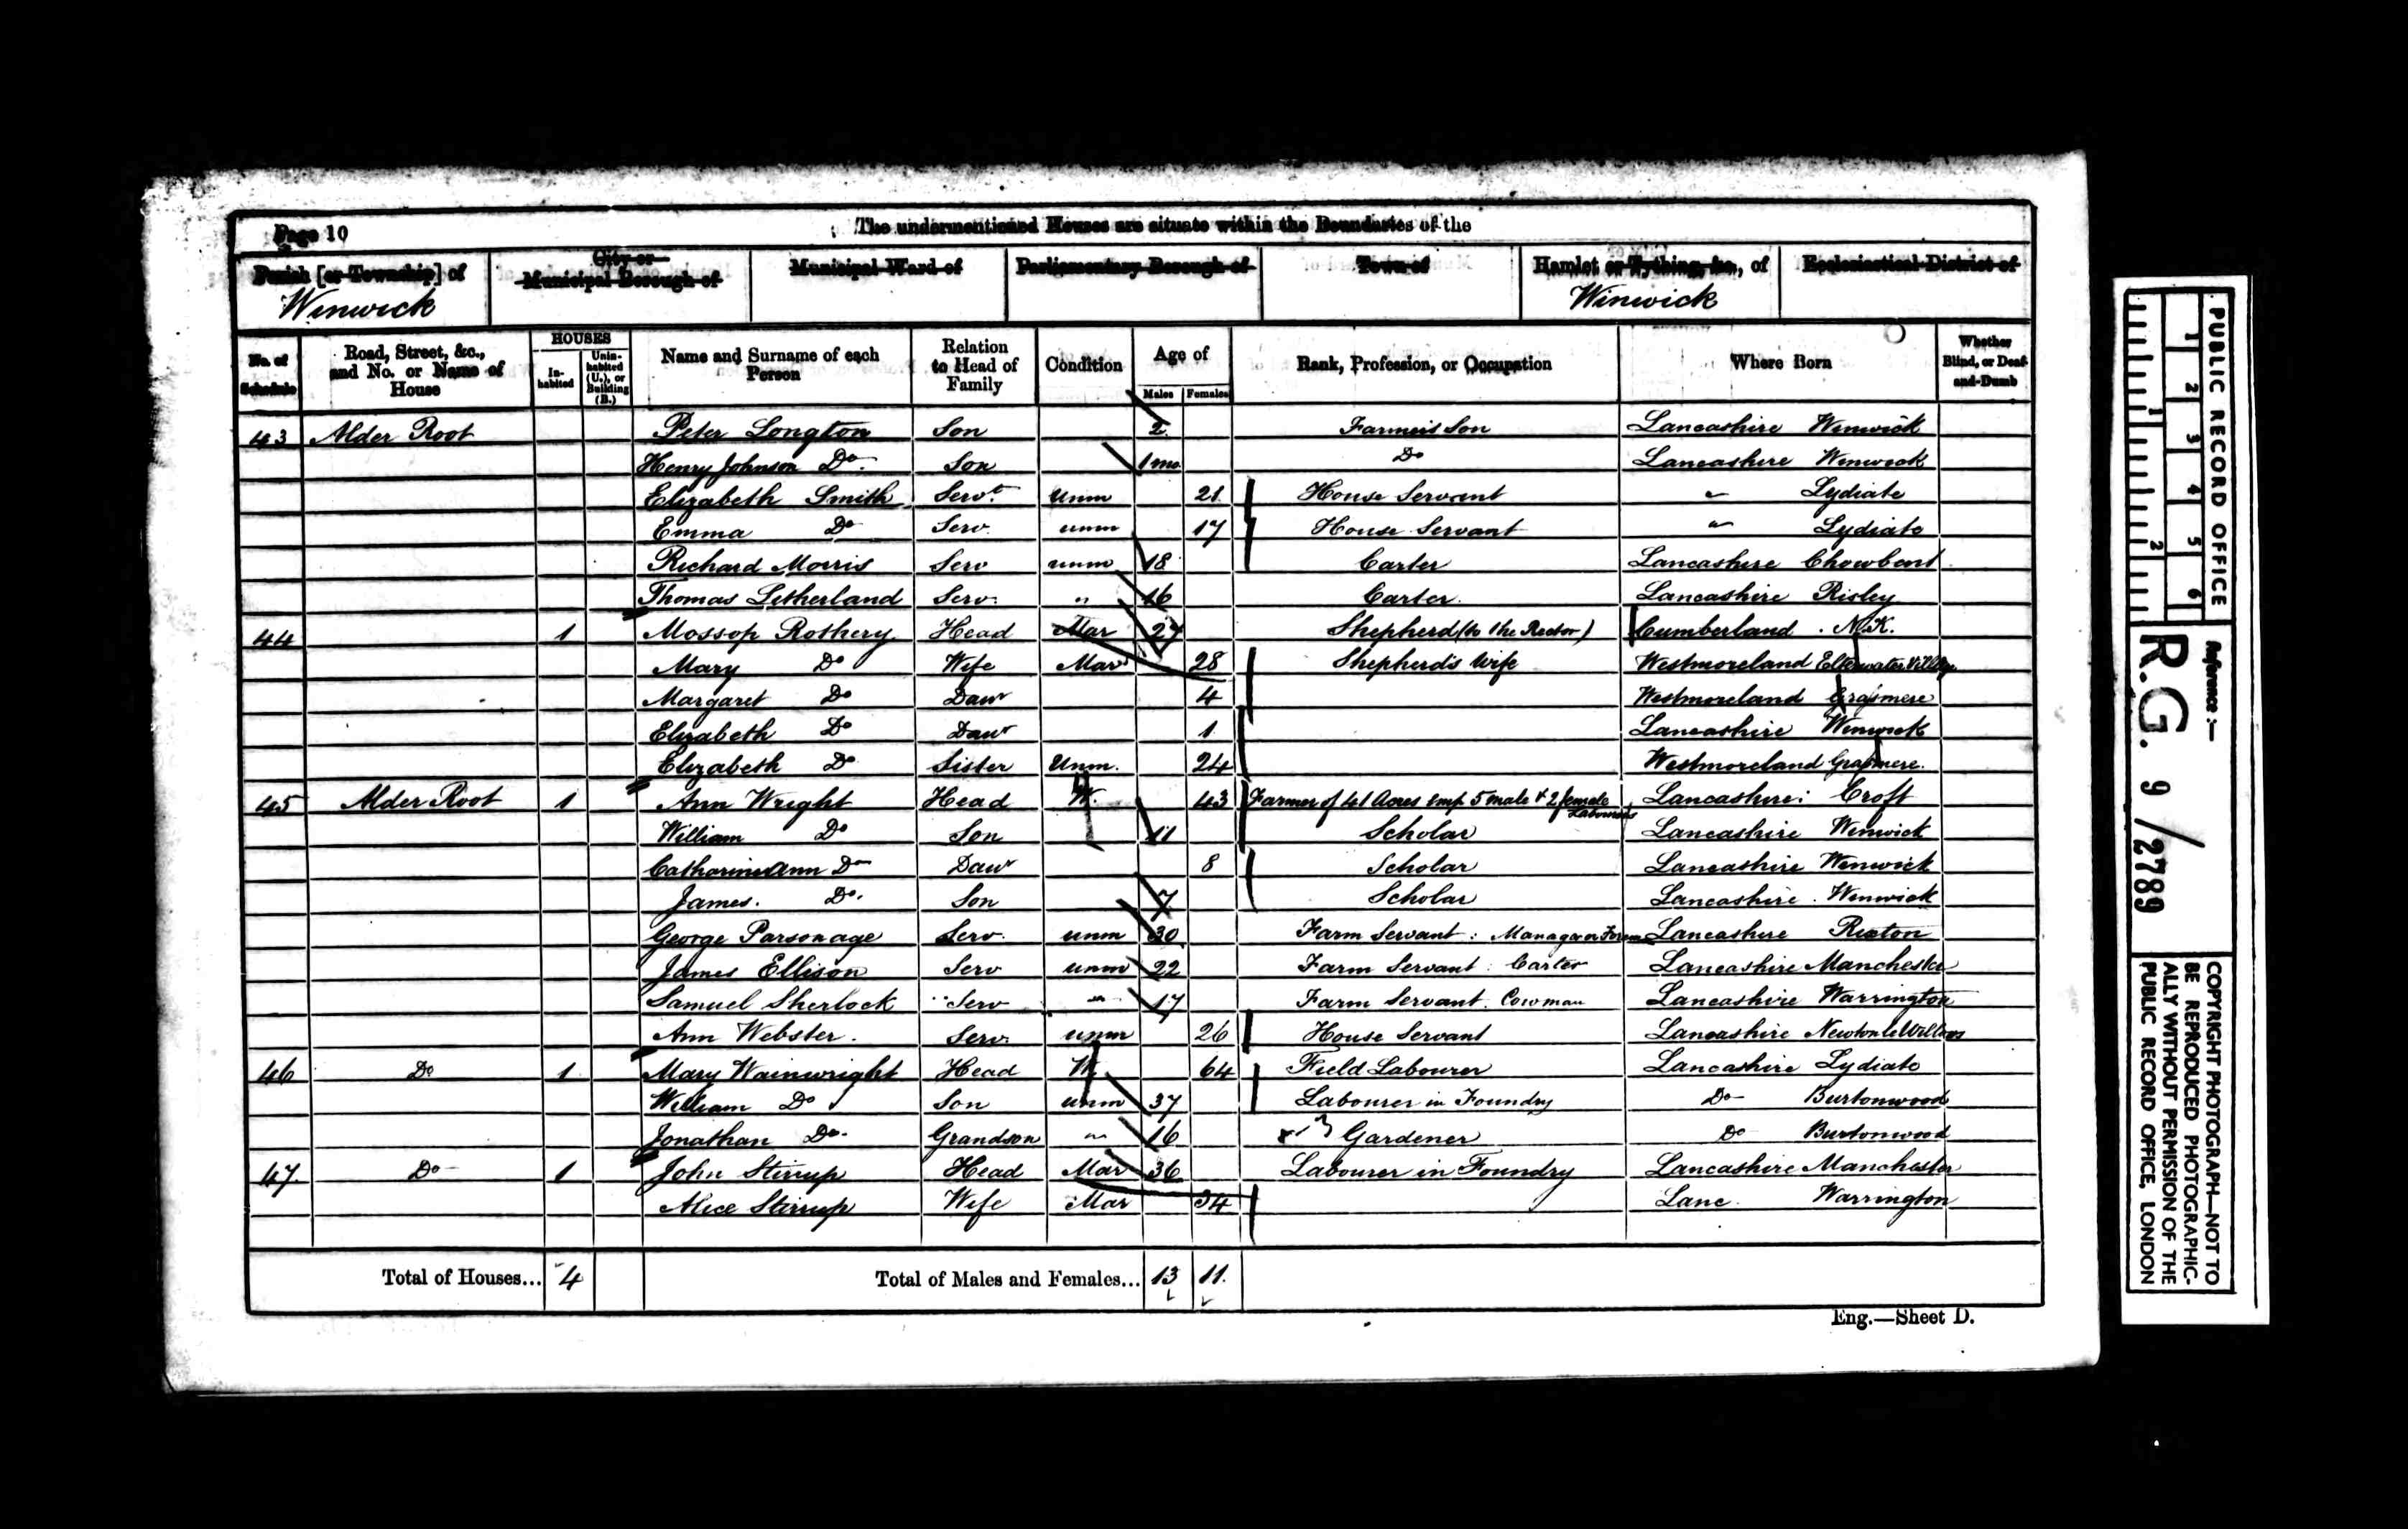 Page 10
The undermentioned Houses are situate within the Boundaries of the
Parish [or Township] of
Winwick
City or Municipal Borough of
Municipal Ward of
Parliamentary Borough of
Town of
Hamlet or Tything, &c., of
Winwick
Ecclesiastical District of
No. of Schedule | Road, Street, &c., and No. or Name of House | HOUSES Inhabited | Uninhabited (U.), or Building (B.) | Name and Surname of each Person | Relation to Head of Family | Condition | Age of Males | Females | Rank, Profession, or Occupation | Where Born | Whether Blind, or Deaf-and-Dumb
43 Alder Root Peter Longton Son 2 Farmer's Son Lancashire Winwick
Henry Johnson Do. Son 1 mo. Do Lancashire Winwick
Elizabeth Smith Servt. Unm 21 House Servant " Lydiate
Emma Do Serv. unm 17 House Servant " Lydiate
Richard Morris Serv unm 18 Carter Lancashire Chowbent
Thomas Letherland Serv. " 16 Carter. Lancashire Risley
44 1 Mossop Rothery Head Mar 27 Shepherd (to the Rector) Cumberland. N.K.
Mary Do Wife Mar 28 Shepherd's Wife Westmoreland Elterwater
Margaret Do Daur 4 Westmoreland Grasmere
Elizabeth Do Daur 1 Lancashire Winwick
Elizabeth Do Sister Unm. 24 Westmoreland Grasmere.
45 Alder Root 1 Ann Wright Head W. 43 Farmer of 41 Acres emp 5 male & 2 female Labourers Lancashire Croft
William Do Son 11 Scholar Lancashire Winwick
Catharine Ann Do Daur 8 Scholar Lancashire Winwick
James. Do. Son 7 Scholar Lancashire. Winwick
George Parsonage Serv. unm 30 Farm Servant: Lancashire Rixton
James Ellison Serv unm 22 Farm Servant: Carter Lancashire Manchester
Samuel Sherlock Serv " 17 Farm Servant. Cowman Lancashire Warrington
Ann Webster. Serv. unm 26 House Servant Lancashire Newton le Willows
46 Do 1 Mary Wainwright Head W. 64 Field Labourer Lancashire Lydiate
William Do Son unm 37 Labourer in Foundry Do Burtonwood
Jonathan Do. Grandson " 16 Gardener Do Burtonwood
47. Do 1 John Stirrup Head Mar 36 Labourer in Foundry Lancashire Manchester
Alice Stirrup Wife Mar 34 Lanc. Warrington
Total of Houses... 4 Total of Males and Females... 13 11.
Eng.—Sheet D.
PUBLIC RECORD OFFICE
1 2 3 4 5 6
1 2
Reference:—
R.G. 9 / 2789
COPYRIGHT PHOTOGRAPH—NOT TO
BE REPRODUCED PHOTOGRAPHIC-
ALLY WITHOUT PERMISSION OF THE
PUBLIC RECORD OFFICE, LONDON